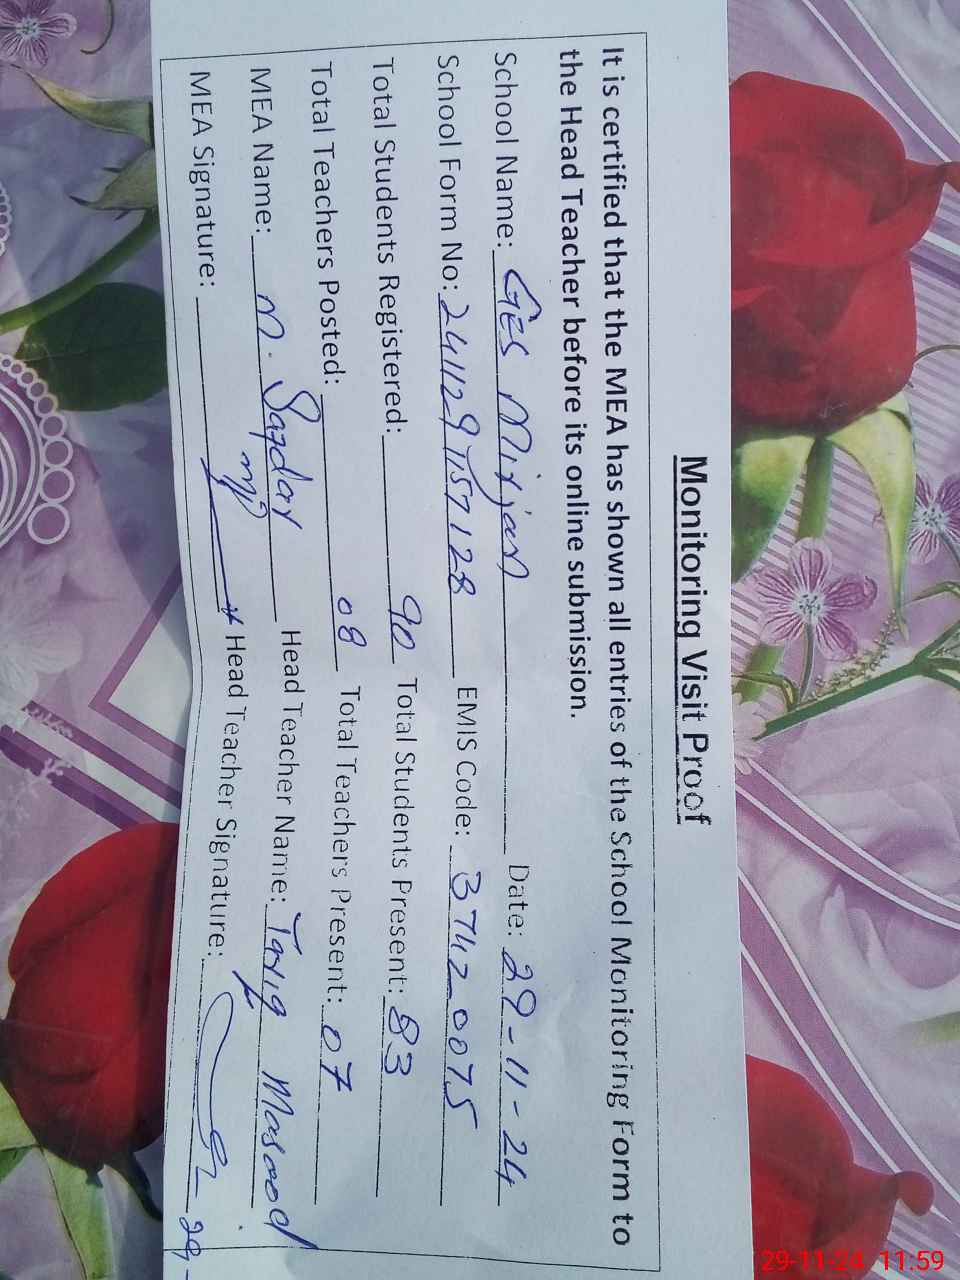 Monitoring Visit Proof
It is certified that the MEA has shown all entries of the School Monitoring Form to
the Head Teacher before its online submission.
School Name: GES Mirjan Date: 29-11-24
School Form No: 241129 EMIS Code: 37420075
Total Students Registered: 90 Total Students Present: 83
Total Teachers Posted: 08 Total Teachers Present: 07
MEA Name: M. Safdar Head Teacher Name: Tariq Masood
MEA Signature: Head Teacher Signature:
29-11-24 11:59